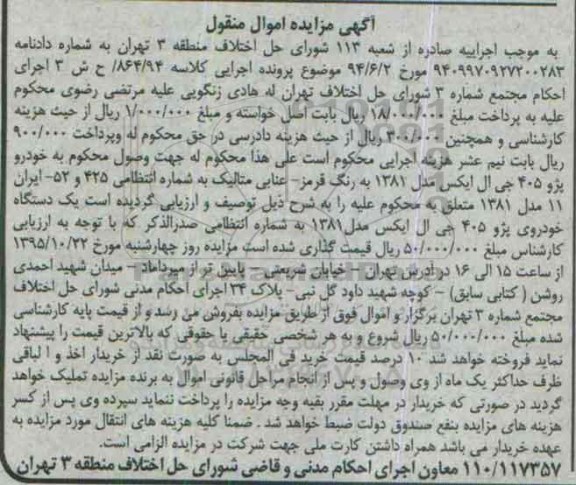 آگهی مزایده اموال منقول
به موجب اجراییه صادره از شعبه ۱۱۳ شورای حل اختلاف منطقه ۳ تهران به شماره دادنامه
۹۴۰۹۹۷۰۹۲۷۲۰۰۲۸۳ مورخ ۹۴/۶/۲ موضوع پرونده اجرایی کلاسه ۸۶۴/۹۴/ ح ش ۳ اجرای
احکام مجتمع شماره ۳ شورای حل اختلاف تهران له هادی زنگویی علیه مرتضی رضوی محکوم
علیه به پرداخت مبلغ ۱۸/۰۰۰/۰۰۰ ریال بابت اصل خواسته و مبلغ ۱/۰۰۰/۰۰۰ ریال از حیث هزینه
کارشناسی و همچنین ۳۰۰/۰۰۰ ریال از حیث هزینه دادرسی در حق محکوم له وپرداخت ۹۰۰/۰۰۰
ریال بابت نیم عشر هزینه اجرایی محکوم است علی هذا محکوم له جهت وصول محکوم به خودرو
پژو ۴۰۵ جی ال ایکس مدل ۱۳۸۱ به رنگ قرمز- عنابی متالیک به شماره انتظامی ۴۲۵ و ۵۲- ایران
۱۱ مدل ۱۳۸۱ متعلق به محکوم علیه را به شرح ذیل توصیف و ارزیابی گردیده است یک دستگاه
خودروی پژو ۴۰۵ جی ال ایکس مدل۱۳۸۱ به شماره انتظامی صدرالذکر که با توجه به ارزیابی
کارشناس مبلغ ۵۰/۰۰۰/۰۰۰ ریال قیمت گذاری شده است مزایده روز چهارشنبه مورخ ۱۳۹۵/۱۰/۲۲
از ساعت ۱۵ الی ۱۶ در آدرس تهران - خیابان شریعتی - پایین تر از میرداماد- میدان شهید احمدی
روشن (کتابی سابق) - کوچه شهید داود گل نبی- پلاک ۳۴ اجرای احکام مدنی شورای حل اختلاف
مجتمع شماره ۳ تهران برگزار و اموال فوق از طریق مزایده بفروش می رسد و از قیمت پایه کارشناسی
شده مبلغ ۵۰/۰۰۰/۰۰۰ ریال شروع و به هر شخصی حقیقی یا حقوقی که بالاترین قیمت را پیشنهاد
نماید فروخته خواهد شد ۱۰ درصد قیمت خرید فی المجلس به صورت نقد از خریدار اخذ و ا لباقی
ظرف حداکثر یک ماه از وی وصول و پس از انجام مراحل قانونی اموال به برنده مزایده تملیک خواهد
گردید در صورتی که خریدار در مهلت مقرر بقیه وجه مزایده را پرداخت ننماید سپرده وی پس از کسر
هزینه های مزایده بنفع صندوق دولت ضبط خواهد شد . ضمنا کلیه هزینه های انتقال مورد مزایده به
عهده خریدار می باشد همراه داشتن کارت ملی جهت شرکت در مزایده الزامی است.
۱۱۰/۱۱۷۳۵۷ معاون اجرای احکام مدنی و قاضی شورای حل اختلاف منطقه ۳ تهران